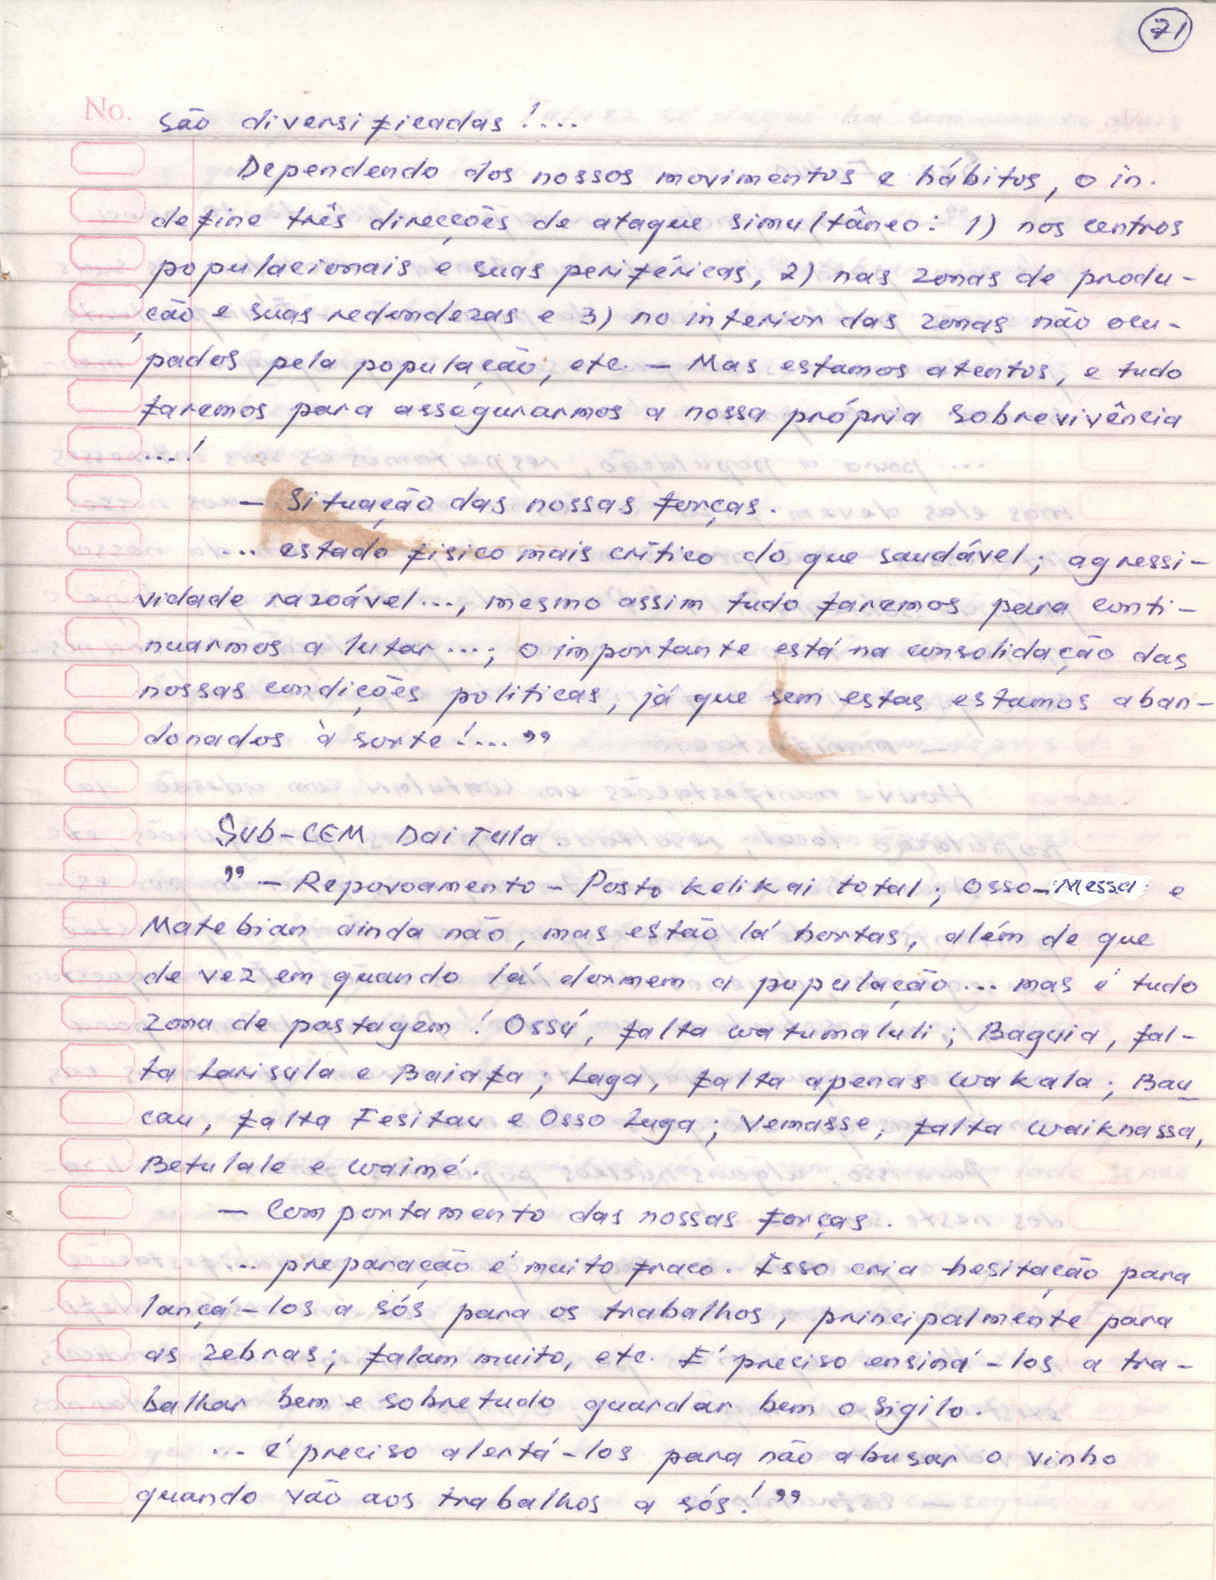 71
No. são diversificadas!...
Dependendo dos nossos movimentos e hábitos, o in.
define três direcções de ataque simultâneo: 1) nos centros
populacionais e suas periféricas, 2) nas zonas de produ-
ção e suas redondezas e 3) no interior das zonas não ocu-
pados pela população, etc. — Mas estamos atentos, e tudo
faremos para assegurarmos a nossa própria sobrevivência
...!
— Situação das nossas forças.
... estado fisico mais crítico do que saudável; agressi-
vidade razoável..., mesmo assim tudo faremos para conti-
nuarmos a lutar...; o importante está na consolidação das
nossas condições politicas, já que sem estas estamos aban-
donados à sorte!..."
Sub-CEM Dai Tula.
" — Repovoamento - Posto Kelikai total; Osso-Messa e
Matebian ainda não, mas estão lá hortas, além de que
de vez em quando lá dormem a população... mas é tudo
zona de pastagem! Ossú, falta watumaluli; Baguia, fal-
ta Larisula e Baiafa; Laga, falta apenas wakala; Bau
cau, falta Fesitau e Osso Luga; Vemasse, falta waiknassa,
Betulale e waimé.
— Comportamento das nossas forças.
... preparação é muito fraco. Isso cria hesitação para
lançá-los a sós para os trabalhos, principalmente para
as zebras; falam muito, etc. É preciso ensiná-los a tra-
balhar bem e sobretudo guardar bem o sigilo.
... é preciso alertá-los para não abusar o vinho
quando vão aos trabalhos a sós!"